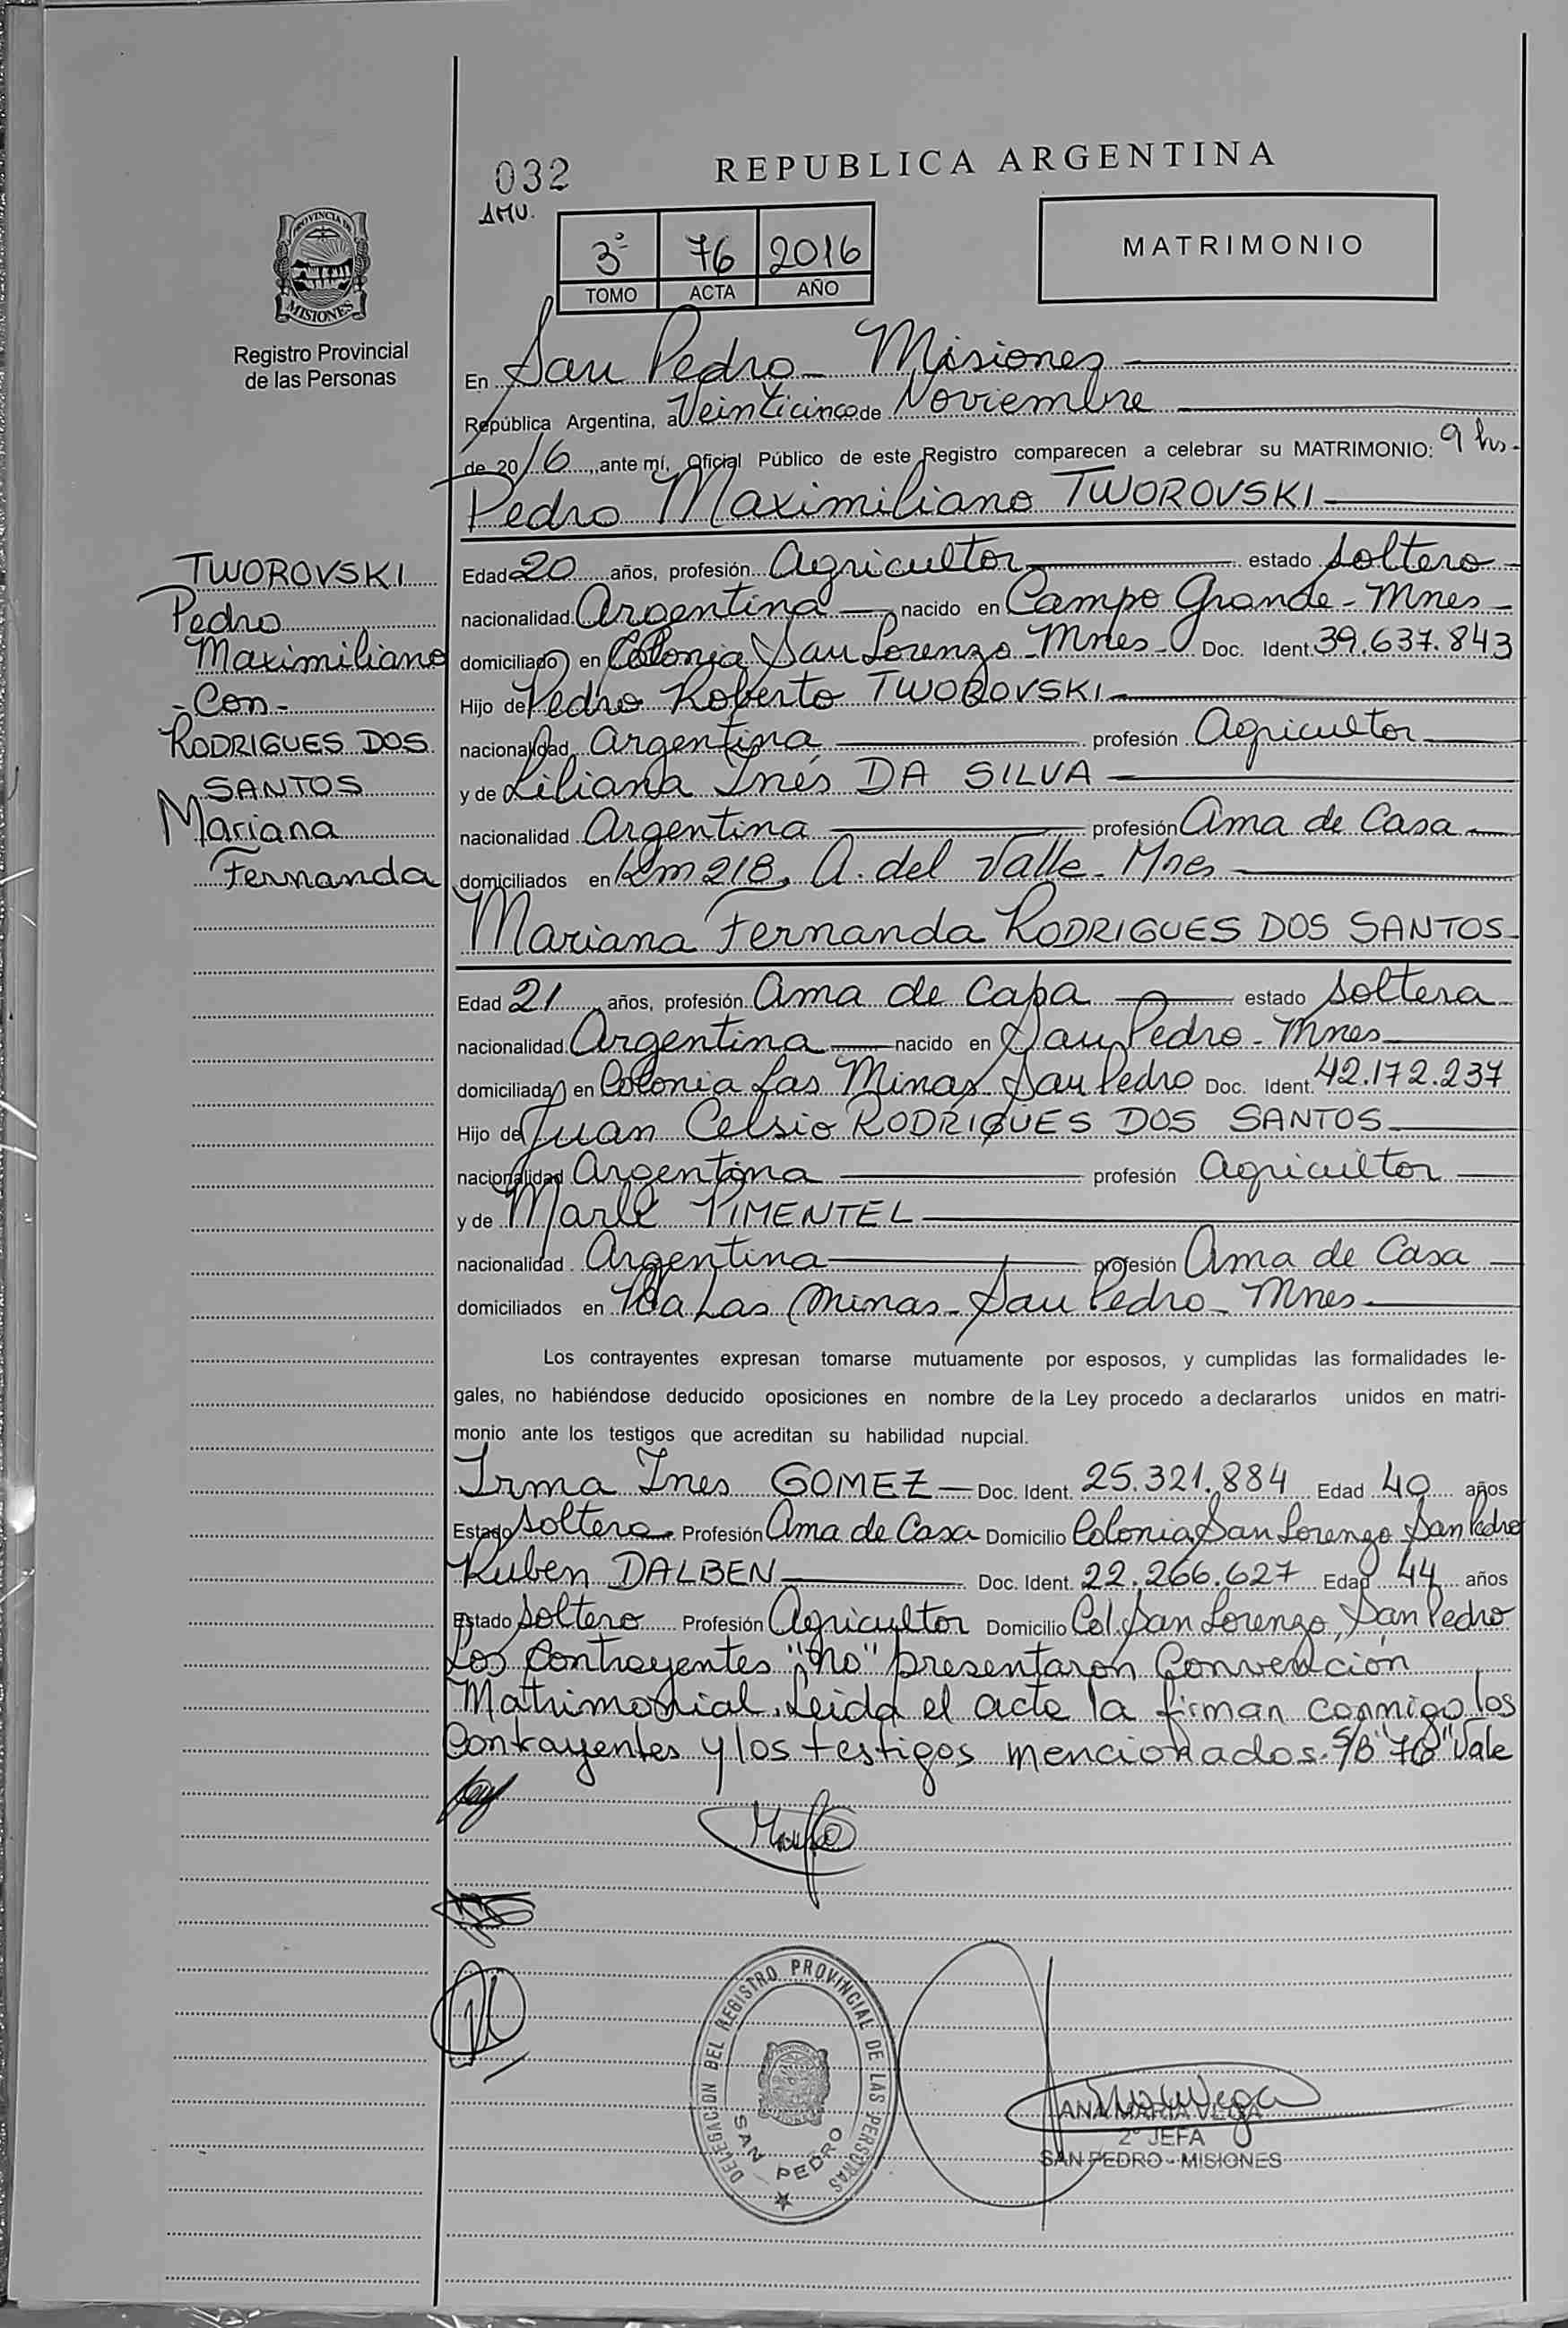 032
REPUBLICA ARGENTINA
AMU.
3º 76 2016
TOMO ACTA AÑO
MATRIMONIO
PROVINCIA DE MISIONES
Registro Provincial
de las Personas
En San Pedro - Misiones
República Argentina, a Veinticinco de Noviembre
de 2016, ante mí, Oficial Público de este Registro comparecen a celebrar su MATRIMONIO: 9 hs.
Pedro Maximiliano TWOROVSKI
TWOROVSKI
Pedro
Maximiliano
- Con -
RODRIGUES DOS
SANTOS
Mariana
Fernanda
Edad 20 años, profesión Agricultor estado Soltero
nacionalidad Argentina nacido en Campo Grande - Mnes
domiciliado en Colonia San Lorenzo - Mnes - Doc. Ident. 39.637.843
Hijo de Pedro Roberto TWOROVSKI
nacionalidad Argentina profesión Agricultor
y de Liliana Inés DA SILVA
nacionalidad Argentina profesión Ama de Casa
domiciliados en Km 218, A. del Valle - Mnes
Mariana Fernanda RODRIGUES DOS SANTOS
Edad 21 años, profesión Ama de Casa estado Soltera
nacionalidad Argentina nacido en San Pedro - Mnes
domiciliada en Colonia Las Minas San Pedro Doc. Ident. 42.172.237
Hijo de Juan Celsio RODRIGUES DOS SANTOS
nacionalidad Argentina profesión Agricultor
y de Marlé PIMENTEL
nacionalidad Argentina profesión Ama de Casa
domiciliados en Las Minas - San Pedro - Mnes
Los contrayentes expresan tomarse mutuamente por esposos, y cumplidas las formalidades le-
gales, no habiéndose deducido oposiciones en nombre de la Ley procedo a declararlos unidos en matri-
monio ante los testigos que acreditan su habilidad nupcial.
Irma Ines GOMEZ Doc. Ident. 25.321.884 Edad 40 años
Estado Soltera Profesión Ama de Casa Domicilio Colonia San Lorenzo San Pedro
Ruben DALBEN Doc. Ident. 22.266.627 Edad 44 años
Estado Soltero Profesión Agricultor Domicilio Col. San Lorenzo, San Pedro
Los Contrayentes "no" presentaron Convención
Matrimonial. Leida el acta la firman conmigo los
Contrayentes y los testigos mencionados. S/B "76" Vale
DELEGACION DEL REGISTRO PROVINCIAL DE LAS PERSONAS
SAN PEDRO
ANA MARIA VEGA
2º JEFA
SAN PEDRO - MISIONES